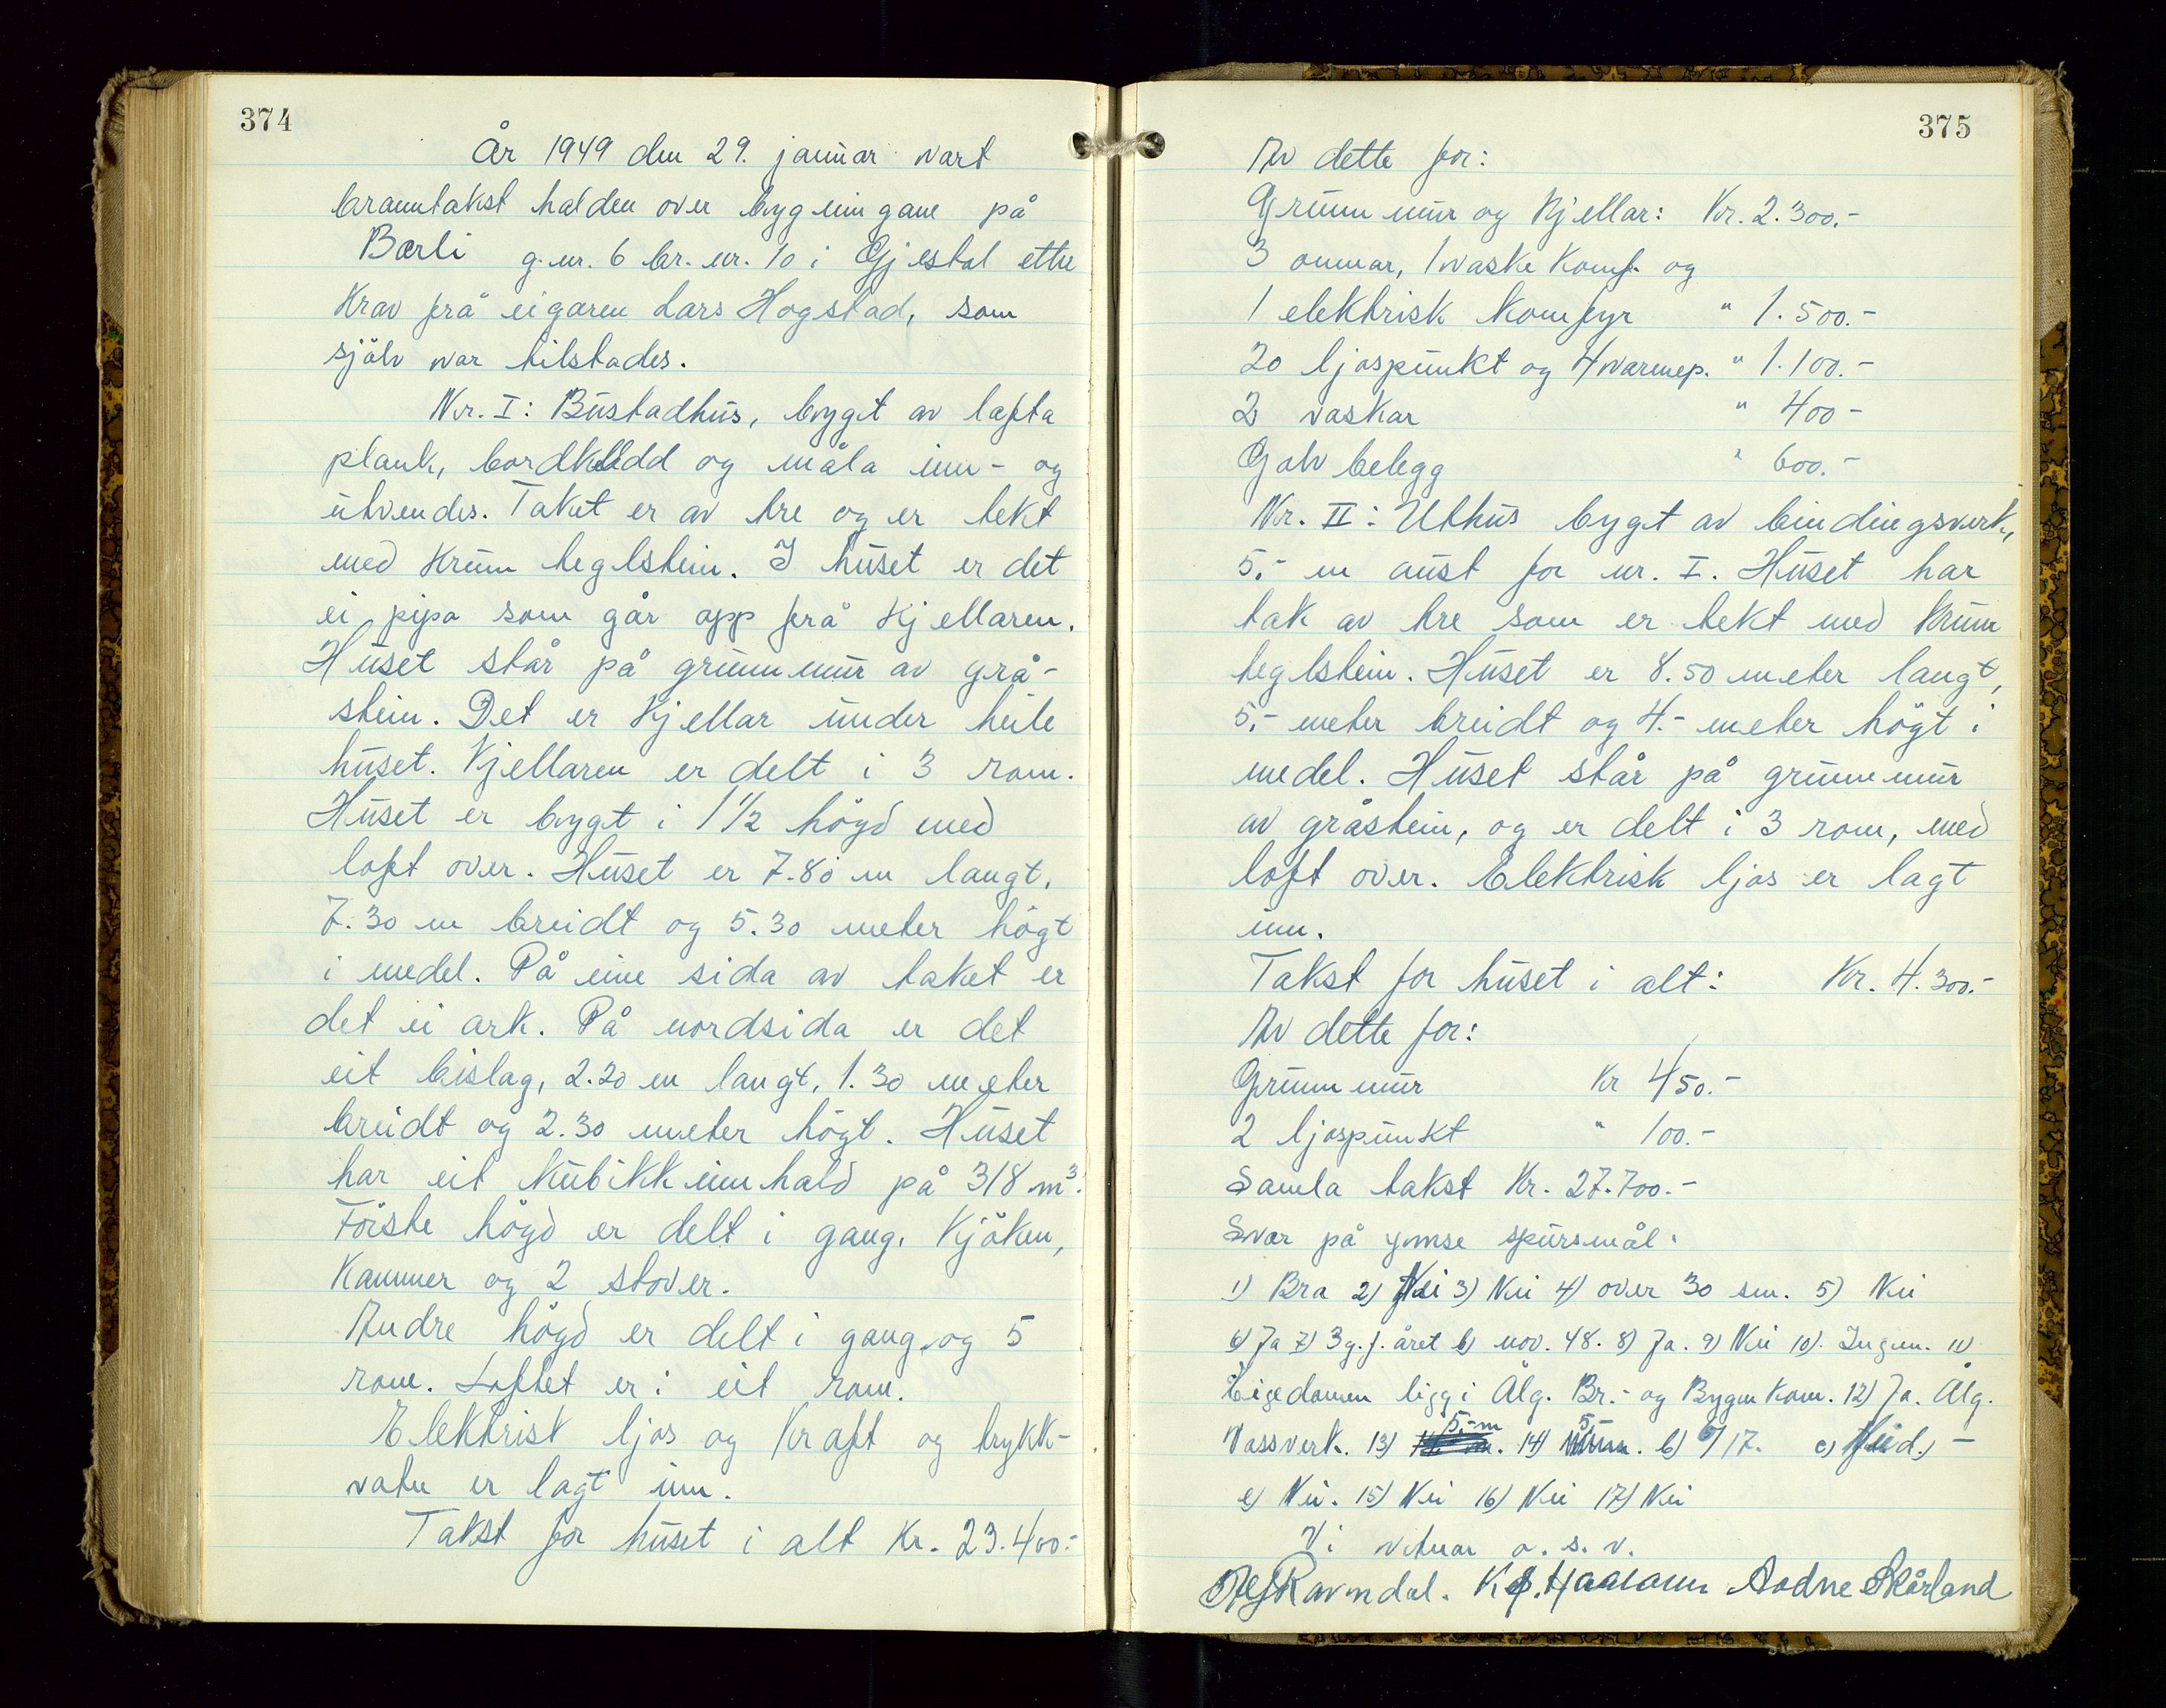 374
År 1949 den 29. januar vart
branntakst halden over bygningane på
Bærli g.nr. 6 br.nr. 10 i Gjestal etter
krav frå eigaren Lars Hogstad, som
sjölv var tilstades.
Nr. I: Bustadhus, bygt av lafta
plank, bordkledd og måla inn- og
utvendes. Taket er av tre og er tekt
med krum teglstein. I huset er det
ei pipa som går opp frå kjellaren.
Huset står på grunnmur av grå-
stein. Det er kjellar under heile
huset. Kjellaren er delt i 3 rom.
Huset er bygt i 1 1/2 högd med
loft over. Huset er 7.80 m langt,
7.30 m breidt og 5.30 meter högt
i medel. På eine sida av taket er
det ei ark. På nordsida er det
eit bislag, 2.20 m langt, 1.30 meter
breidt og 2.30 meter högt. Huset
har eit kubikkinnhald på 318 m³.
Förste högd er delt i gang, kjöken,
kammer og 2 stover.
Andre högd er delt i gang og 5
rom. Loftet er i eit rom.
Elektrist ljos og kraft og trykk-
vatn er lagt inn.
Takst for huset i alt Kr. 23.400.-
375
Av dette for:
Grunnmur og kjellar: Kr. 2.300.-
3 omnar, 1 vaskekomf. og
1 elektrisk komfyr " 1.500.-
20 ljospunkt og 4 varmep. " 1.100.-
2 vaskar " 400-
Golvbelegg " 600.-
Nr. II: Uthus bygt av bindingsverk,
5.- m aust for nr. I. Huset har
tak av tre som er tekt med krum
teglstein. Huset er 8.50 meter langt,
5.- meter breidt og 4.- meter högt i
medel. Huset står på grunnmur
av gråstein, og er delt i 3 rom, med
loft over. Elektrisk ljos er lagt
inn.
Takst for huset i alt: Kr. 4.300.-
Av dette for:
Grunnmur Kr 450.-
2 ljospunkt " 100.-
Samla takst Kr. 27.700.-
Svar på ymse spursmål:
1) Bra 2) Nei 3) Nei 4) over 30 sm. 5) Nei
6) Ja 7) 3 g. f. året b) nov. 48. 8) Ja. 9) Nei 10). Ingen. 11)
Eigedomen ligg i Ålg. Br.- og Bygn kom. 12) Ja. Ålg.
Vassverk. 13) 5,-m. 14) 5,- b) 6/17. c) Nei d) -
e) Nei. 15) Nei 16) Nei 17) Nei
Vi vitnar o. s. v.
Ravndal. Haaland Aadne Skårland